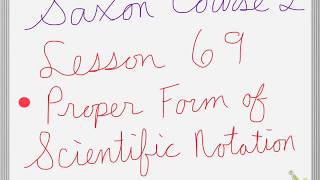 Saxon Course 2
Lesson 69
• Proper Form of
Scientific Notation